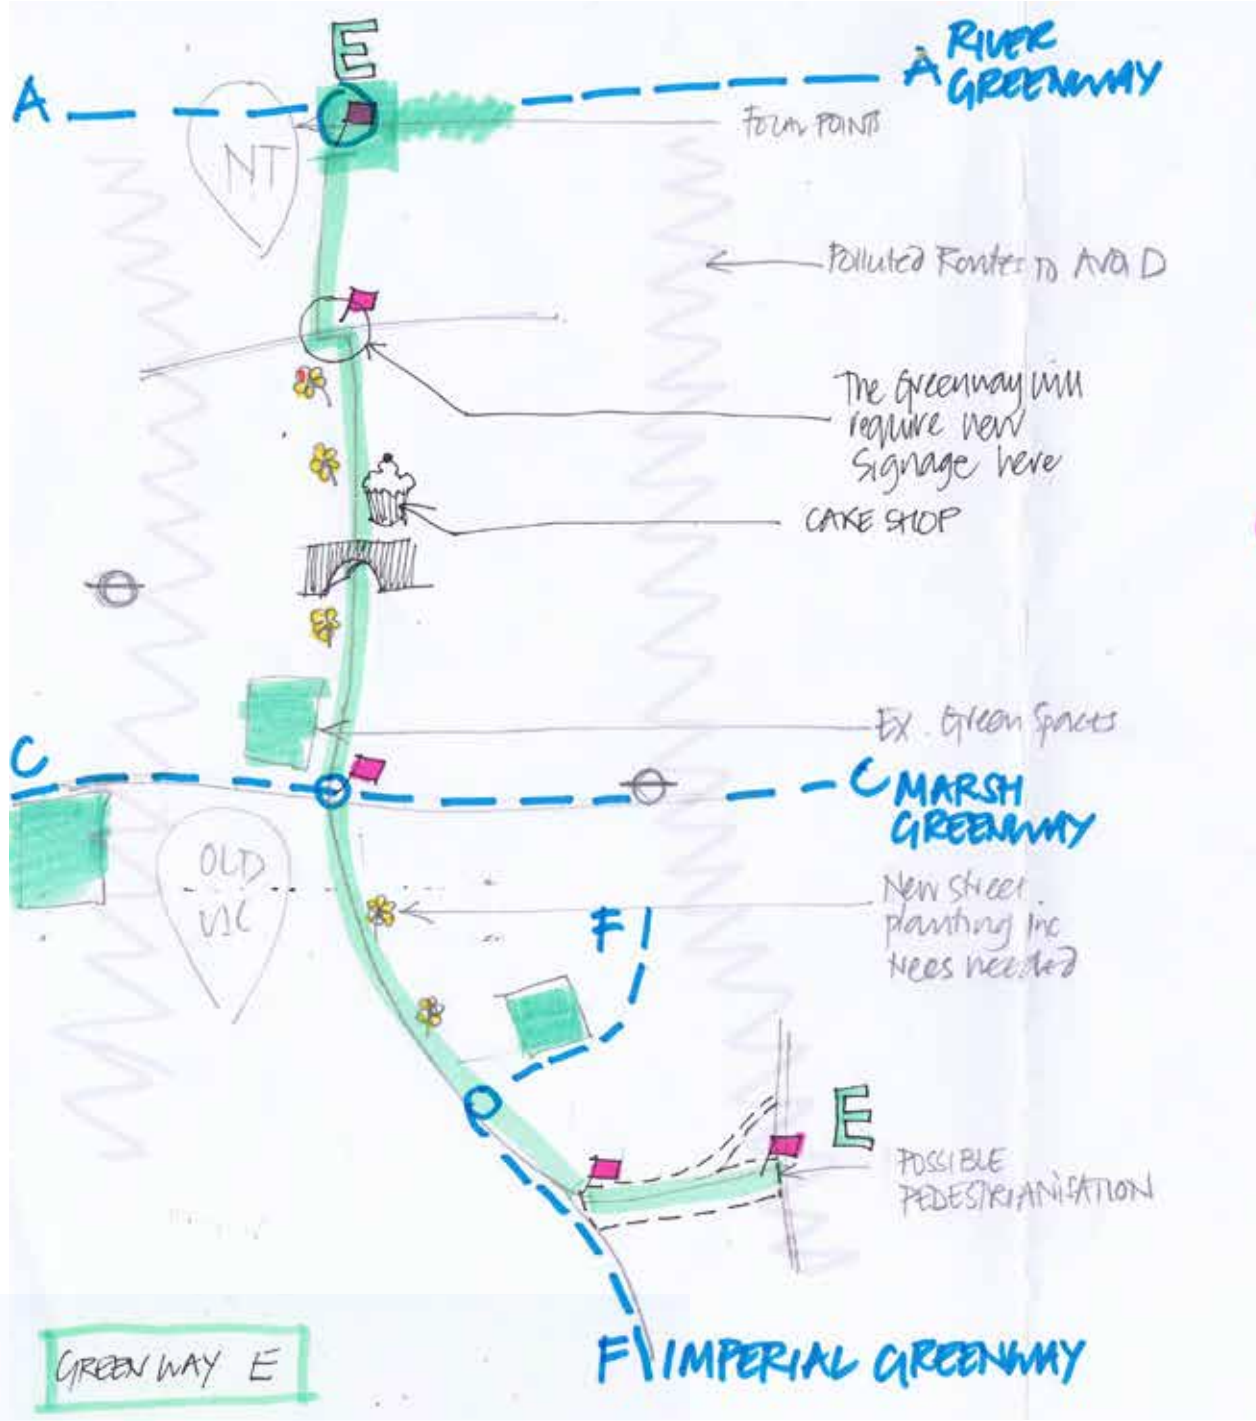 E
A
A RIVER
GREENWAY
FOCAL POINTS
NT
Polluted Routes to AvoiD
The Greenway will
require new
Signage here
CAKE SHOP
Ex. Green Spaces
C
C MARSH
GREENWAY
OLD
VIC
New street
planting inc
trees needed
F
E
POSSIBLE
PEDESTRIANISATION
GREENWAY E
F IMPERIAL GREENWAY